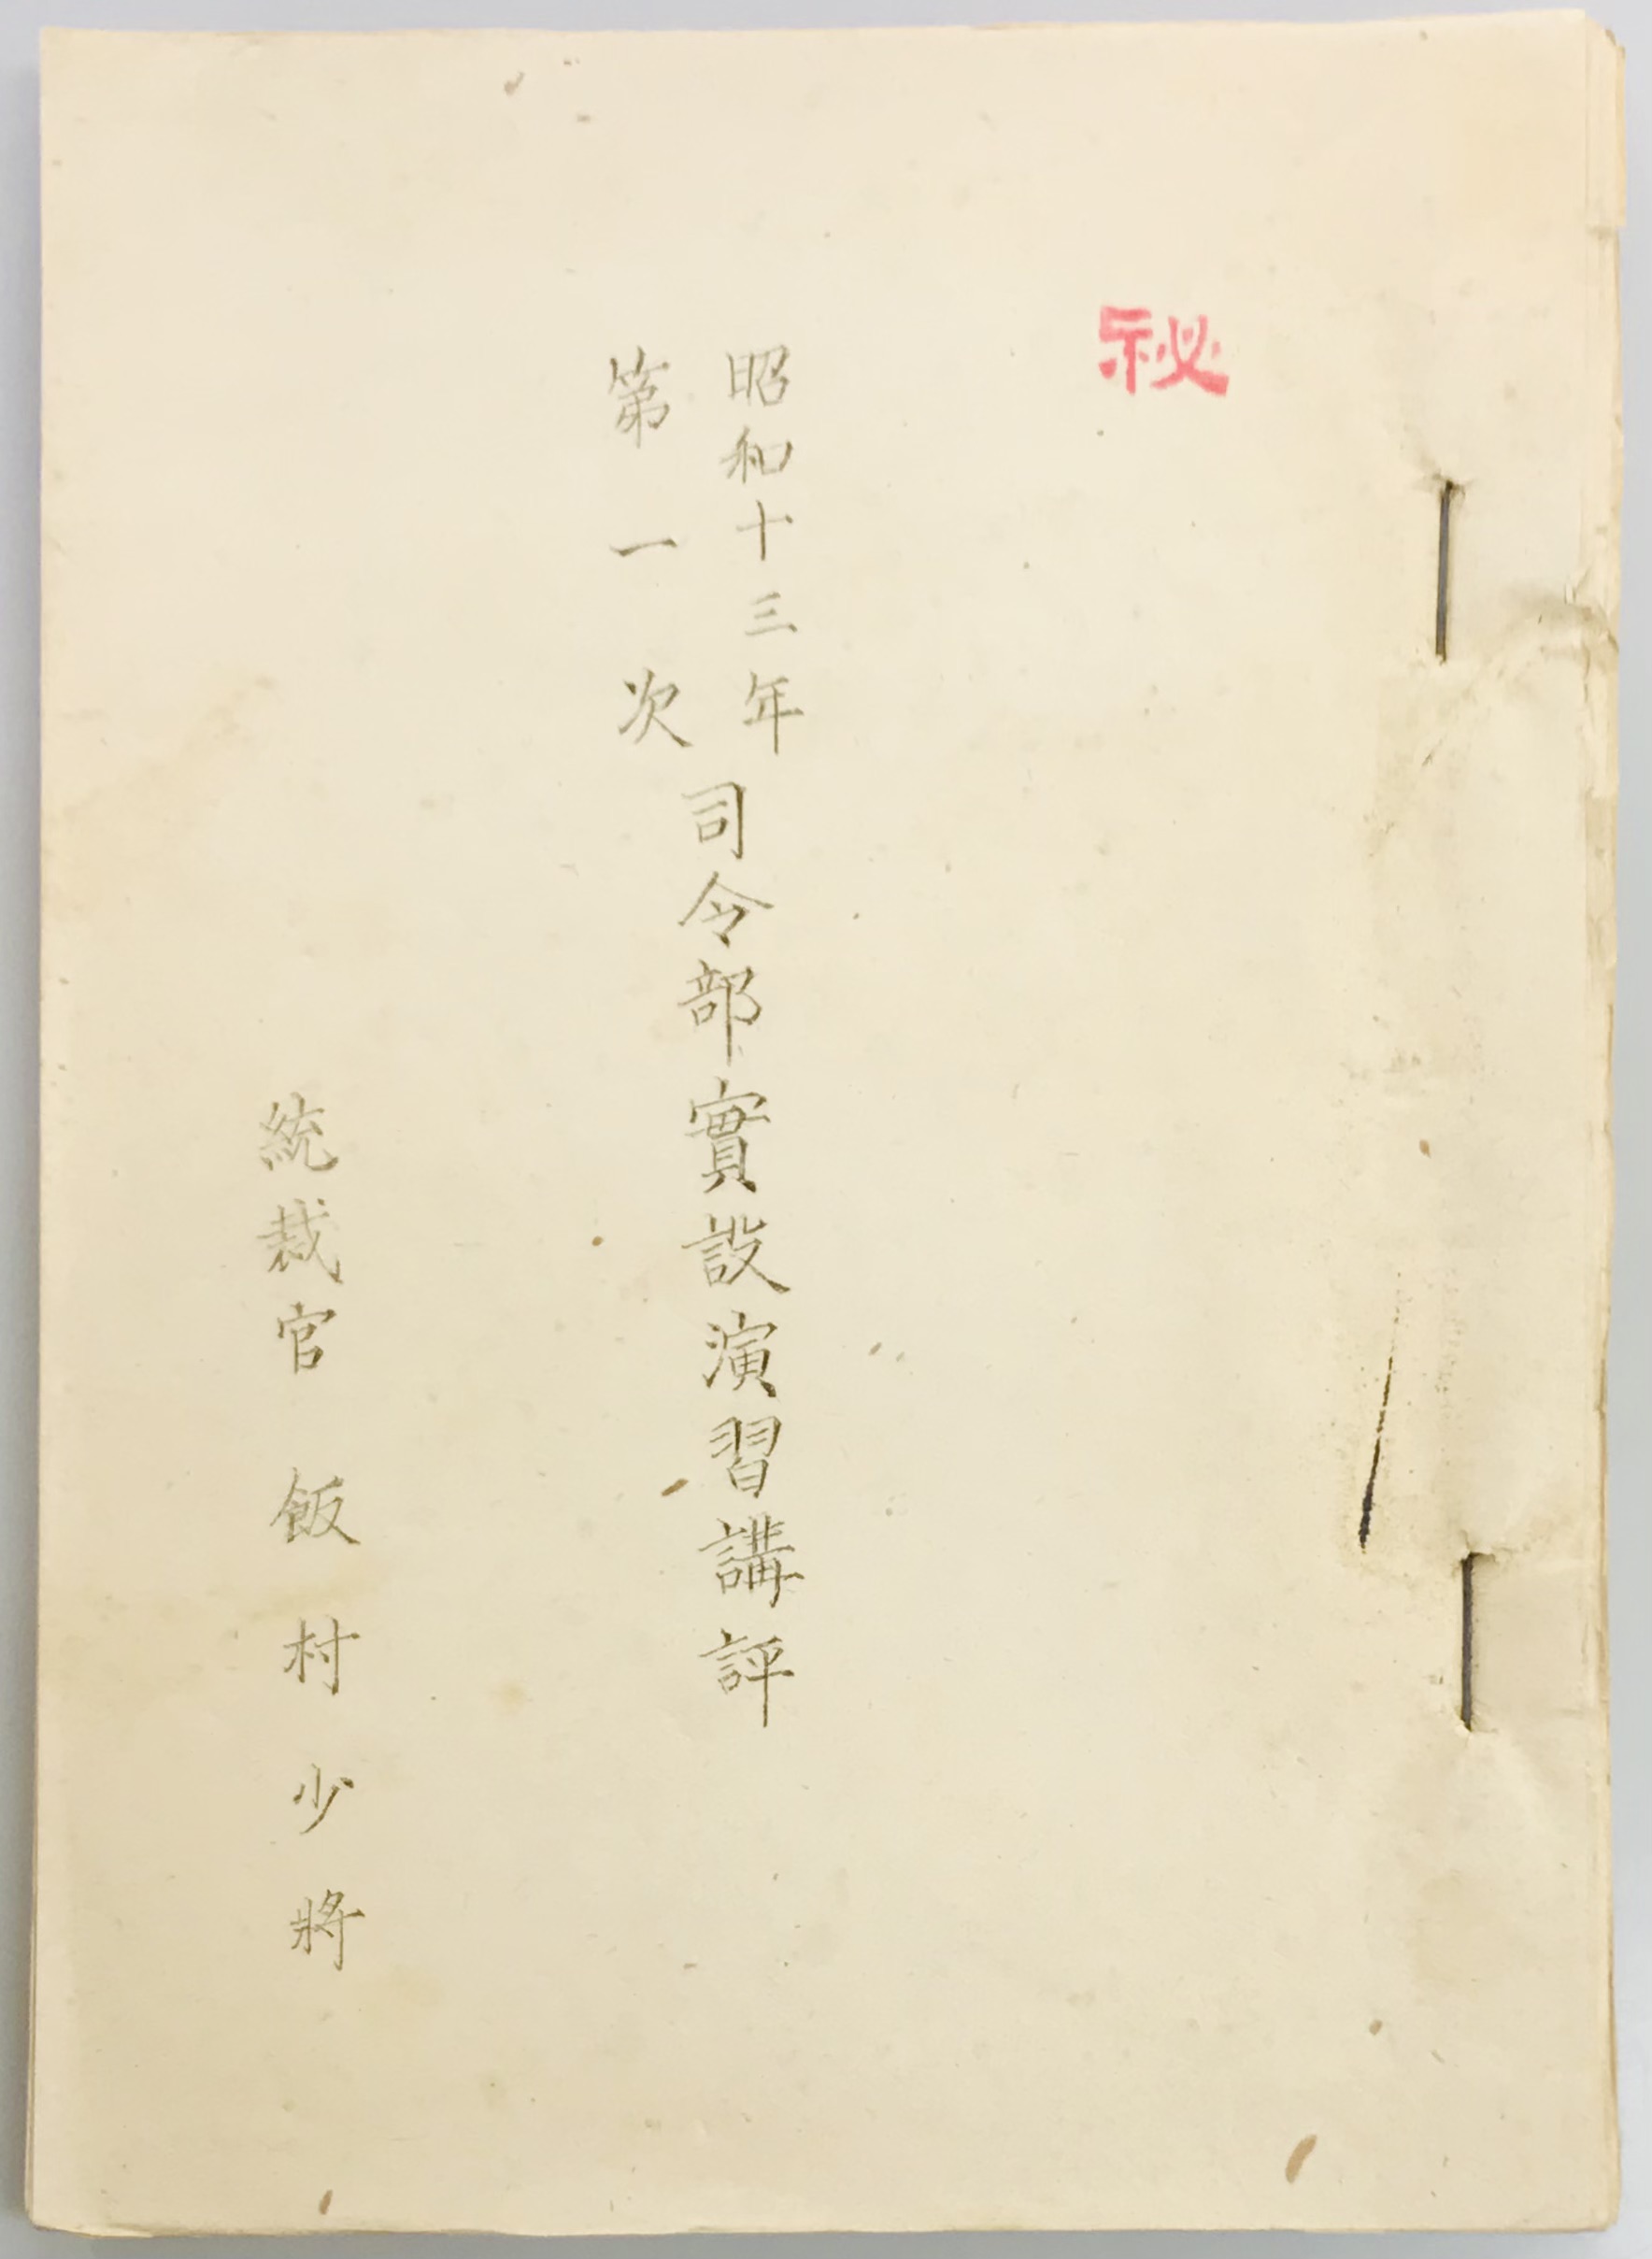 秘
昭和十三年
第一次
司令部實設演習講評
統裁官 飯村少將